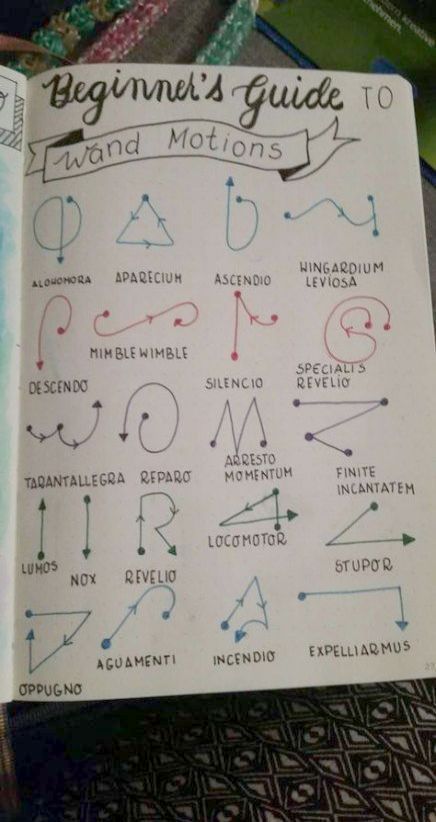 Beginner's Guide TO
Wand Motions
ALOHOMORA APARECIUM ASCENDIO WINGARDIUM
LEVIOSA
DESCENDO MIMBLEWIMBLE SILENCIO SPECIALIS
REVELIO
TARANTALLEGRA REPARO ARRESTO
MOMENTUM FINITE
INCANTATEM
LUMOS NOX REVELIO LOCOMOTOR STUPOR
OPPUGNO AGUAMENTI INCENDIO EXPELLIARMUS